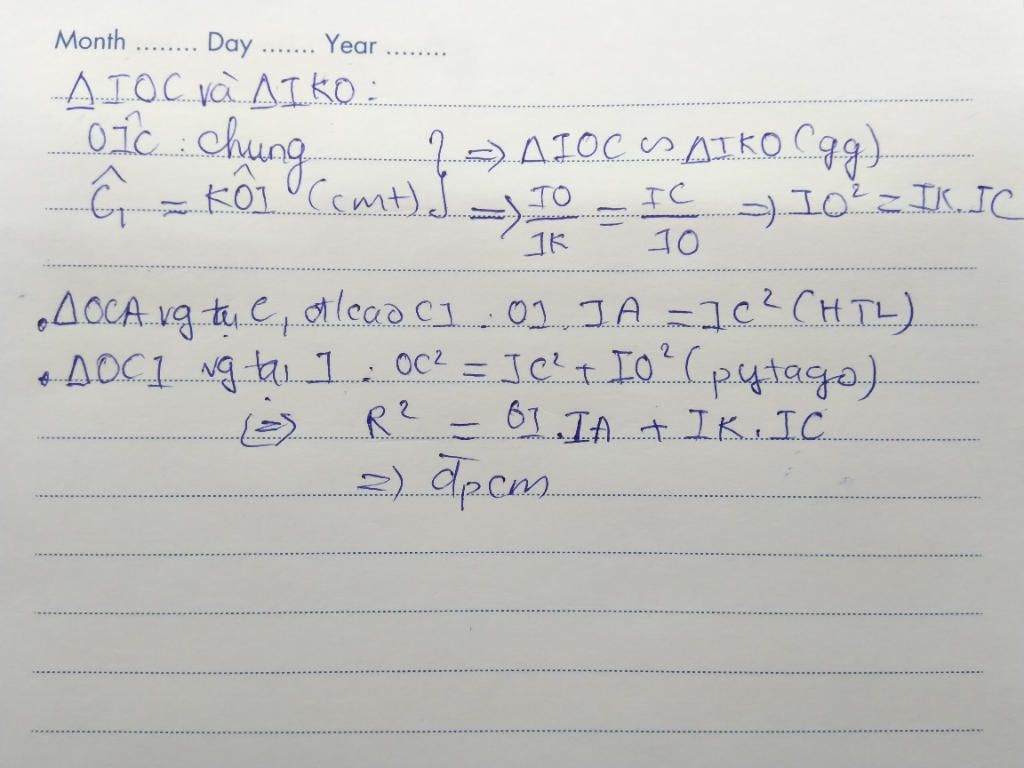 Month ........ Day ....... Year ........
ΔIOC và ΔIKO :
OÎC : chung } => ΔIOC ∽ ΔIKO (gg)
Ĉ₁ = KÔI (cmt) => IO/IK = IC/IO => IO² = IK.IC
. ΔOCA vg tại C, đ/cao CI : OI . IA = IC² (HTL)
. ΔOCI vg tại I : OC² = IC² + IO² (pytago)
(=) R² = OI . IA + IK . IC
=) đpcm